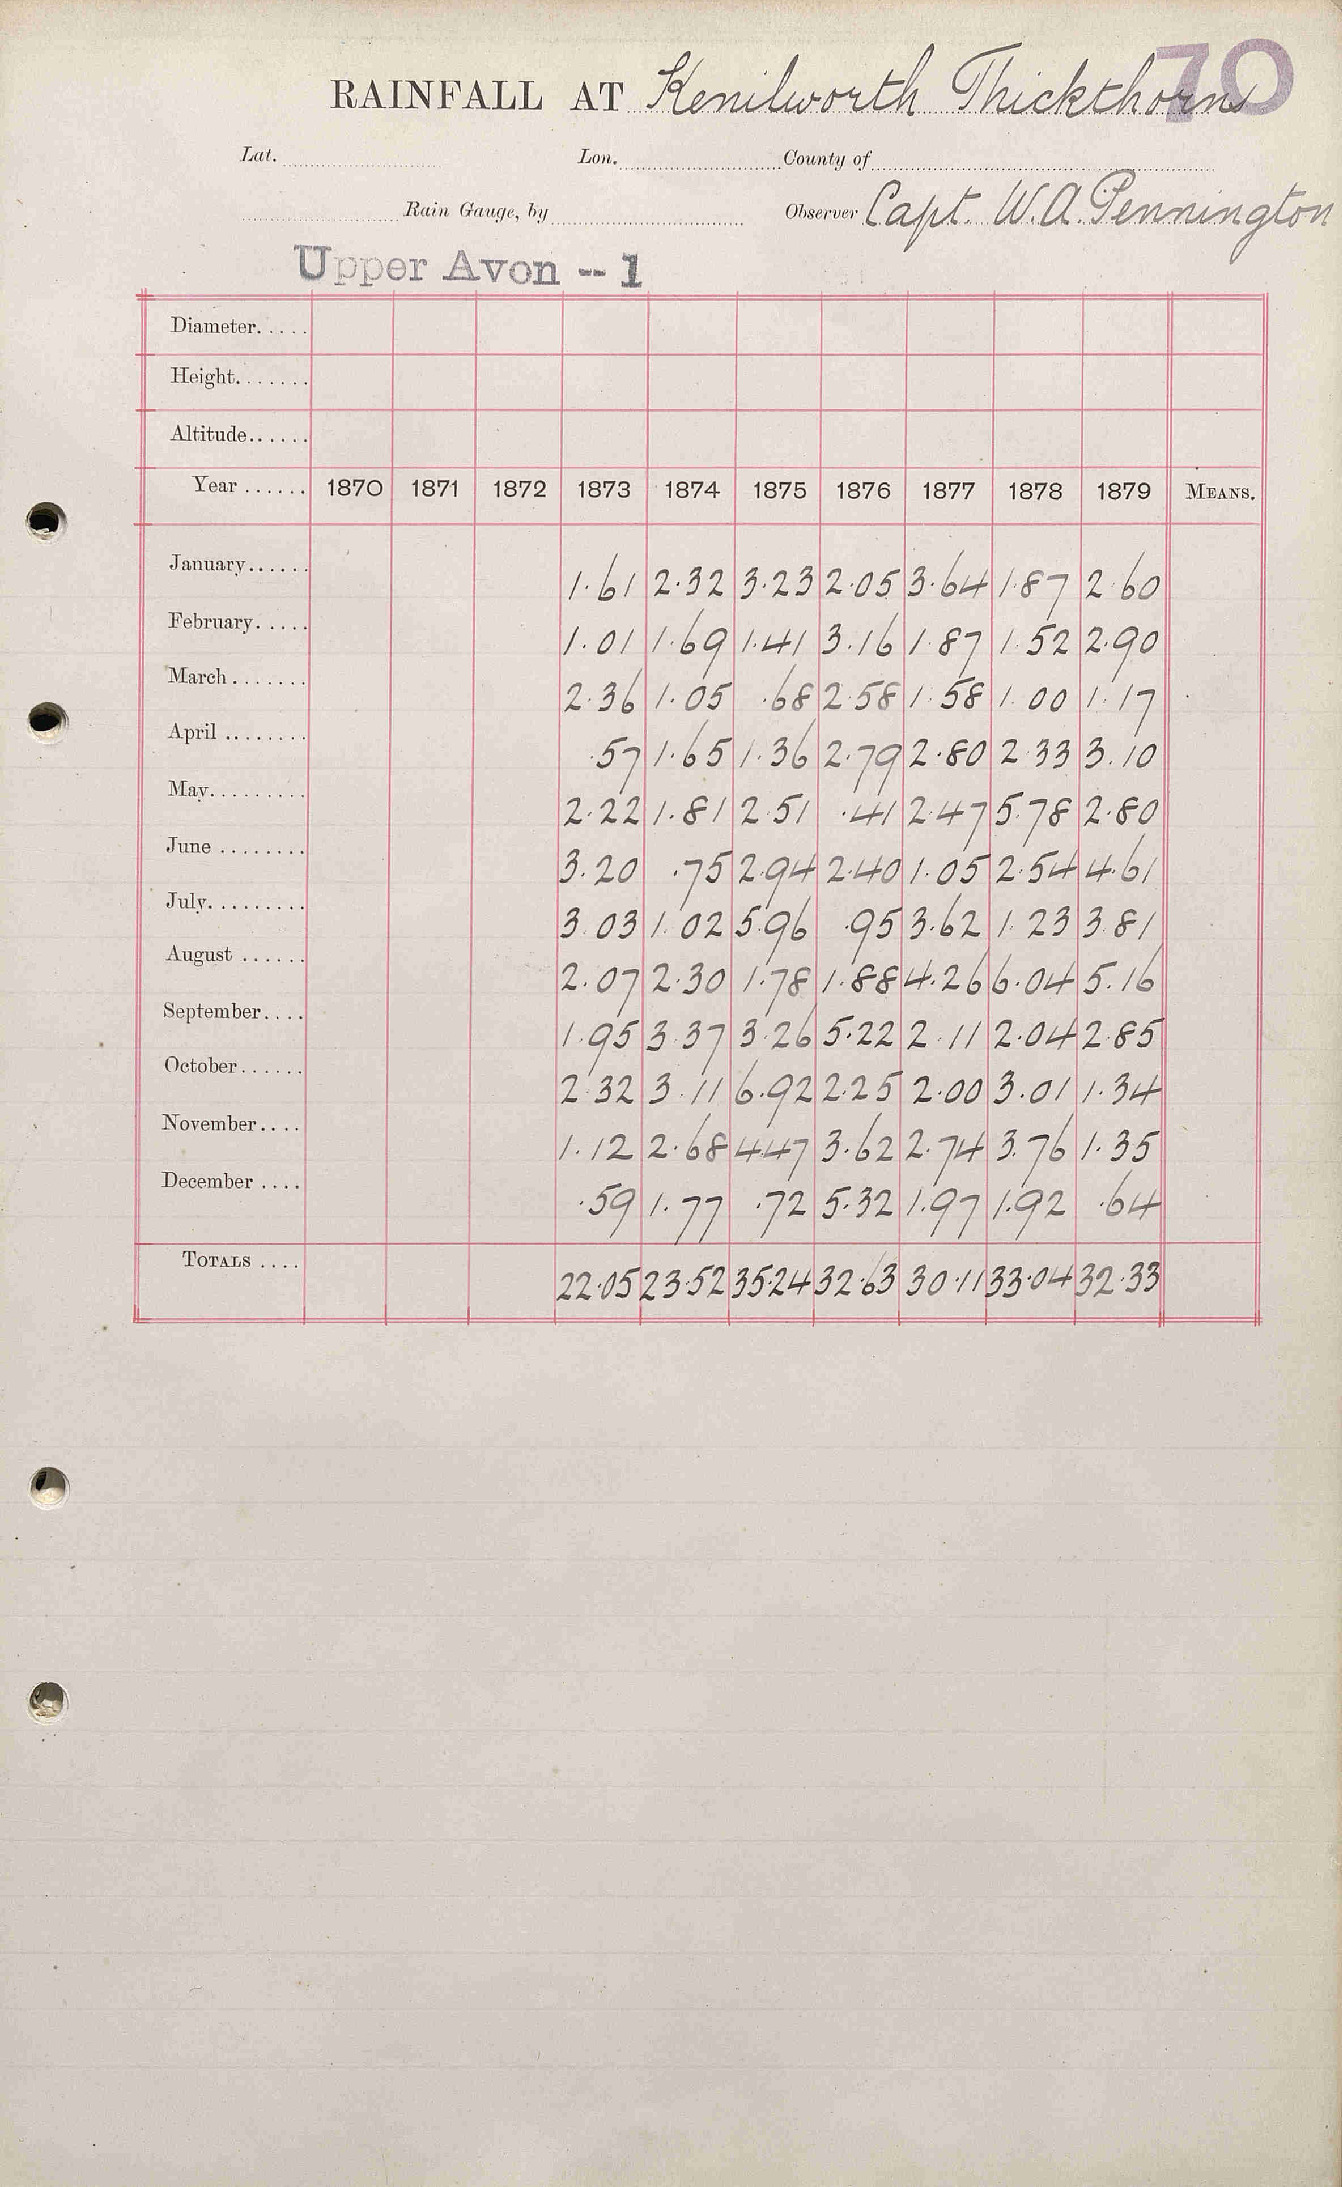 70
RAINFALL AT Kenilworth Thickthorns
Lat. Lon. County of
Rain Gauge, by Observer Capt. W.A. Pennington
Upper Avon -- 1
Diameter.....
Height.......
Altitude......
Year ...... 1870 1871 1872 1873 1874 1875 1876 1877 1878 1879 MEANS.
January...... 1.61 2.32 3.23 2.05 3.64 1.87 2.60
February..... 1.01 1.69 1.41 3.16 1.87 1.52 2.90
March....... 2.36 1.05 .68 2.58 1.58 1.00 1.17
April ........ .57 1.65 1.36 2.79 2.80 2.33 3.10
May......... 2.22 1.81 2.51 .41 2.47 5.78 2.80
June ........ 3.20 .75 2.94 2.40 1.05 2.54 4.61
July......... 3.03 1.02 5.96 .95 3.62 1.23 3.81
August ...... 2.07 2.30 1.78 1.88 4.26 6.04 5.16
September.... 1.95 3.37 3.26 5.22 2.11 2.04 2.85
October...... 2.32 3.11 6.92 2.25 2.00 3.01 1.34
November.... 1.12 2.68 4.47 3.62 2.74 3.76 1.35
December .... .59 1.77 .72 5.32 1.97 1.92 .64
TOTALS .... 22.05 23.52 35.24 32.63 30.11 33.04 32.33